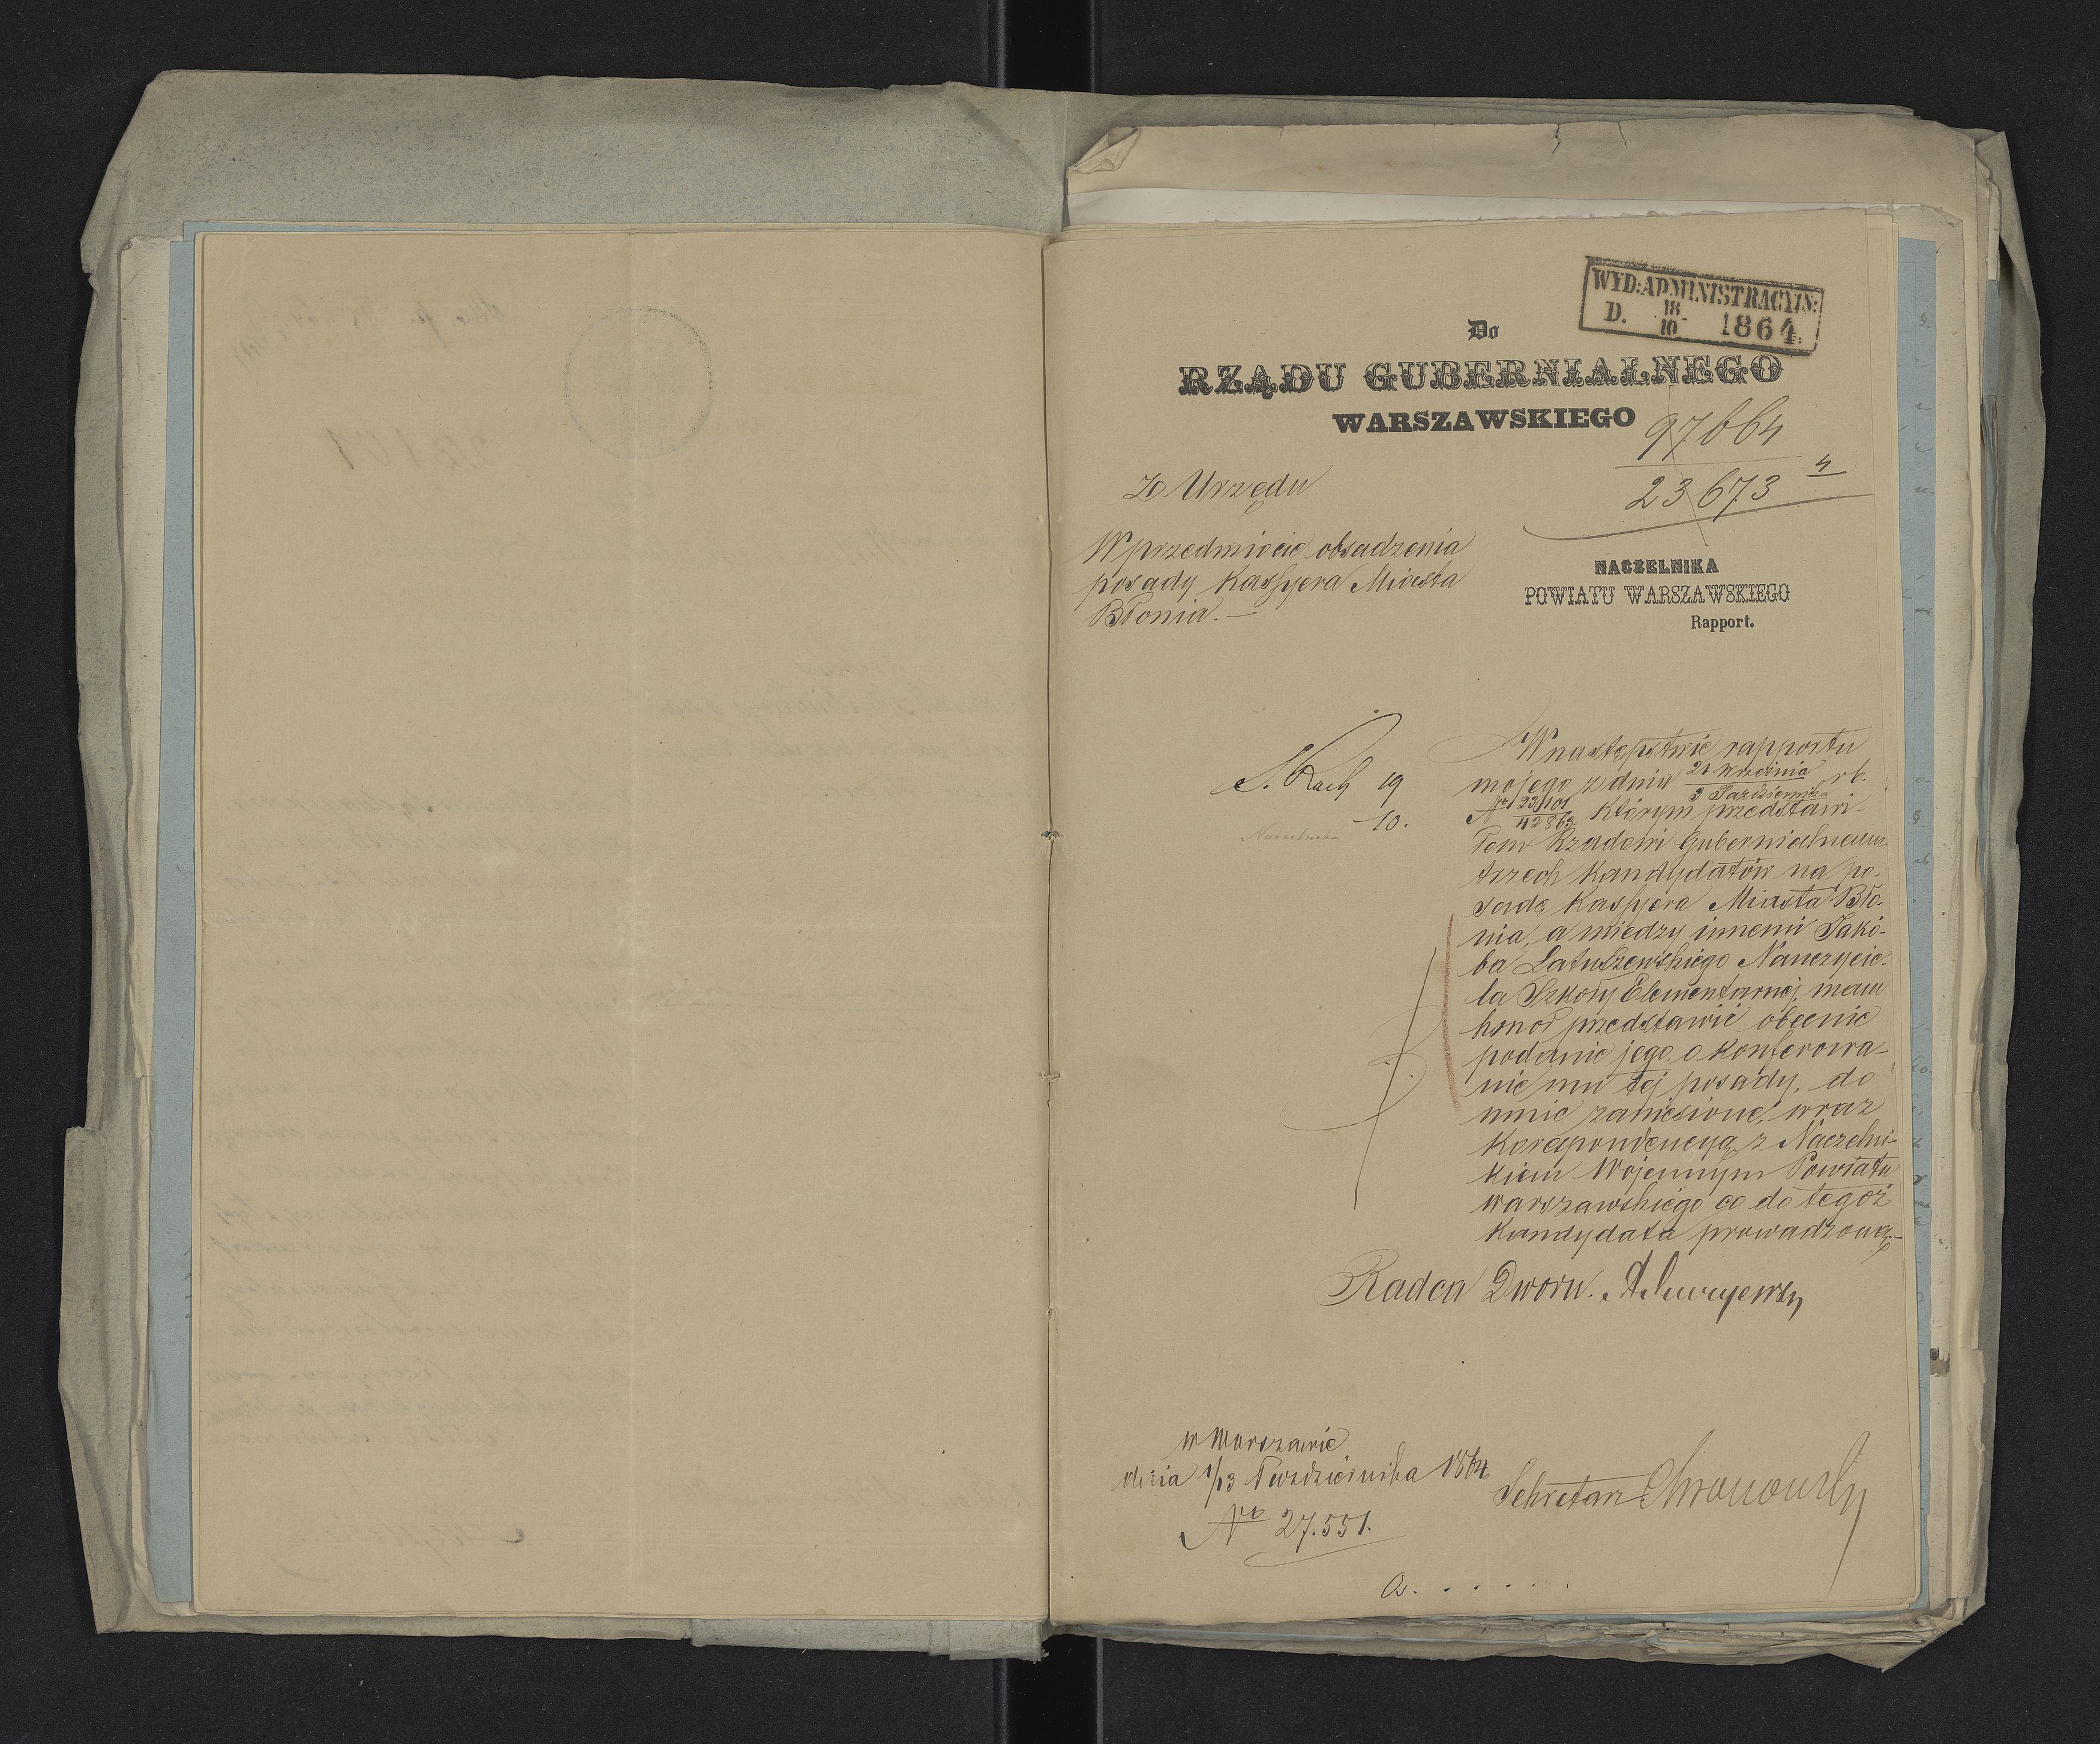 WYD: ADMINISTRACYJN:
D. 18/10 1864.
Do
RZĄDU GUBERNIALNEGO
WARSZAWSKIEGO
97664
23673 4
Z Urzędu
W przedmiocie obsadzenia
posady Kassyera Miasta
Błonia. —
NACZELNIKA
POWIATU WARSZAWSKIEGO
Rapport.
W następstwie rapportu
mojego z dnia 21 Września / 3 Października rb.
№ 23101/42863 którym przedstawi-
łem Rządowi Gubernialnemu
trzech Kandydatów na po-
sadę Kassyera Miasta Bło-
nia, a między innemi Jakó-
ba Latuszewskiego Nauczycie-
la Szkoły Elementarnej, mam
honor przedstawić obecnie
podanie jego o konferowa-
nie mu tej posady, do
mnie zaniesione, wraz
Korespondencyą z Naczelni-
kiem Wojennym Powiatu
Warszawskiego co do tegoż
Kandydata prowadzoną. —
19
10.
Radca Dworu.
w Warszawie
dnia 1/13 Października 1864
№ 27.551.
Sekretarz